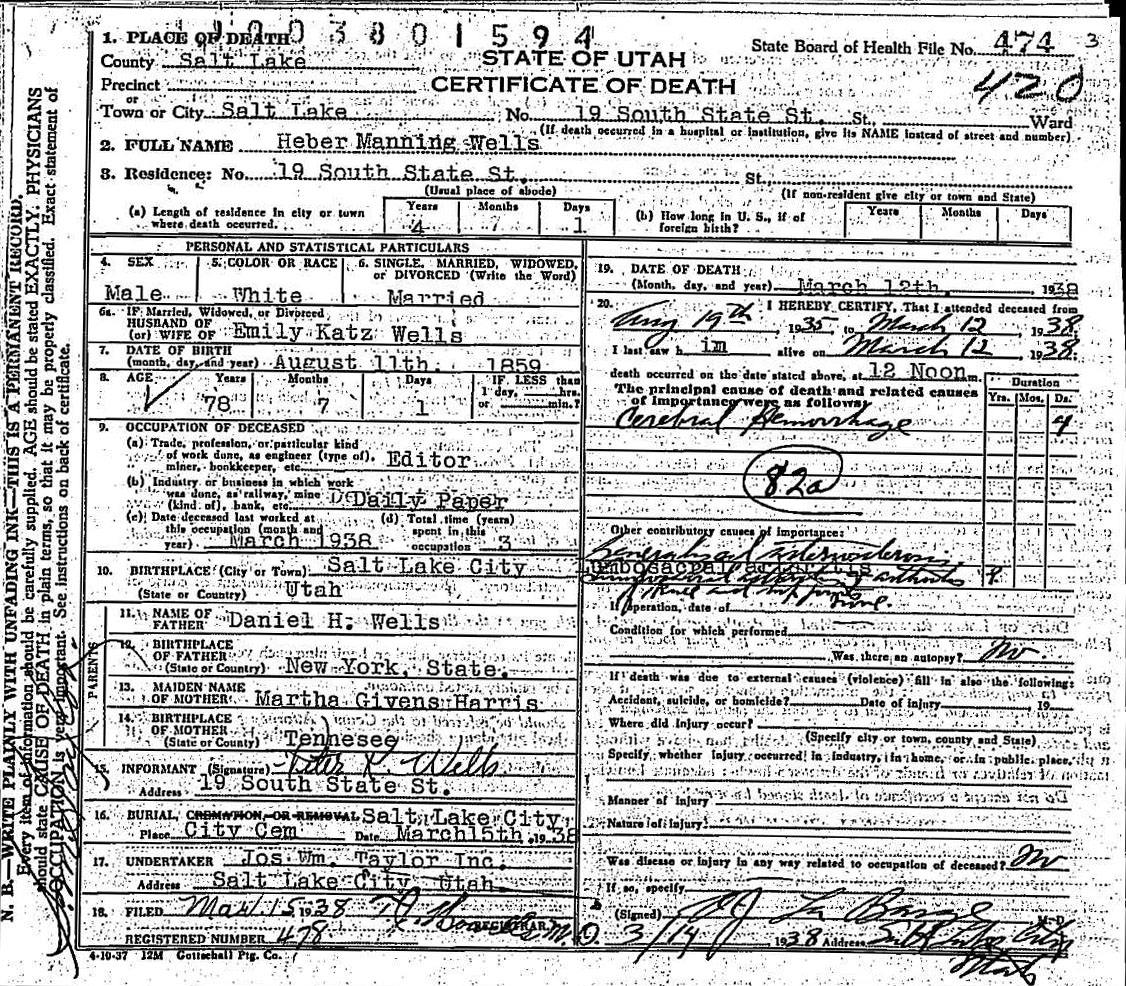 3801594
1. PLACE OF DEATH
STATE OF UTAH
State Board of Health File No. 474 3
County Salt Lake
CERTIFICATE OF DEATH
420
Precinct
or
Town or City Salt Lake No. 19 South State St. St., Ward
(If death occurred in a hospital or institution, give its NAME instead of street and number)
2. FULL NAME Heber Manning Wells
3. Residence: No. 19 South State St. St.
(Usual place of abode) (If non-resident give city or town and State)
(a) Length of residence in city or town where death occurred. Years 4 Months 7 Days 1
(b) How long in U. S., if of foreign birth? Years Months Days
PERSONAL AND STATISTICAL PARTICULARS
4. SEX Male
5. COLOR OR RACE White
6. SINGLE, MARRIED, WIDOWED, or DIVORCED (Write the Word) Married
6a. IF Married, Widowed, or Divorced
HUSBAND OF
(or) WIFE OF Emily Katz Wells
7. DATE OF BIRTH
(month, day, and year) August 11th. 1859
8. AGE Years 78 Months 7 Days 1 IF LESS than 1 day, hrs. or min.?
9. OCCUPATION OF DECEASED
(a) Trade, profession, or particular kind
of work done, as engineer (type of),
miner, bookkeeper, etc. Editor
(b) Industry or business in which work
was done, as railway, mine
(kind of), bank, etc. Daily Paper
(c) Date deceased last worked at
this occupation (month and
year) March 1938
(d) Total time (years)
spent in this
occupation 3
10. BIRTHPLACE (City or Town) Salt Lake City
(State or Country) Utah
PARENTS
11. NAME OF
FATHER Daniel H. Wells
12. BIRTHPLACE
OF FATHER
(State or Country) New York, State.
13. MAIDEN NAME
OF MOTHER Martha Givens Harris
14. BIRTHPLACE
OF MOTHER
(State or County) Tennesee
15. INFORMANT (Signature) Wells
Address 19 South State St.
16. BURIAL, CREMATION, OR REMOVAL Salt Lake City
Place City Cem Date March 15th, 1938
17. UNDERTAKER Jos Wm. Taylor Inc.
Address Salt Lake City Utah
18. FILED Mar 15 1938
REGISTRAR
REGISTERED NUMBER 478
4-10-37 12M Gottschall Ptg. Co.
19. DATE OF DEATH
(Month, day, and year) March 12th. 1938
20. I HEREBY CERTIFY, That I attended deceased from
Aug 19th 1935 to March 12 1938.
I last saw him alive on March 12 1938.
death occurred on the date stated above, at 12 Noon m.
The principal cause of death and related causes
of importance were as follows:
Duration
Yrs. Mos. Ds.
Cerebral Hemorrhage 4
82a
Other contributory causes of importance:
Generalized arteriosclerosis
Lumbosacral arthritis
If operation, date of
Condition for which performed
Was there an autopsy? No
If death was due to external causes (violence) fill in also the following:
Accident, suicide, or homicide? Date of injury 19
Where did injury occur?
(Specify city or town, county and State)
Specify whether injury occurred in industry, in home, or in public place.
Manner of injury
Nature of injury
Was disease or injury in any way related to occupation of deceased? No
If so, specify
(Signed) La Barge M. D.
3/14 1938 Address Salt Lake City
Utah
N. B.—WRITE PLAINLY WITH UNFADING INK—THIS IS A PERMANENT RECORD.
Every item of information should be carefully supplied. AGE should be stated EXACTLY. PHYSICIANS
should state CAUSE OF DEATH in plain terms, so that it may be properly classified. Exact statement of
OCCUPATION is very important. See instructions on back of certificate.